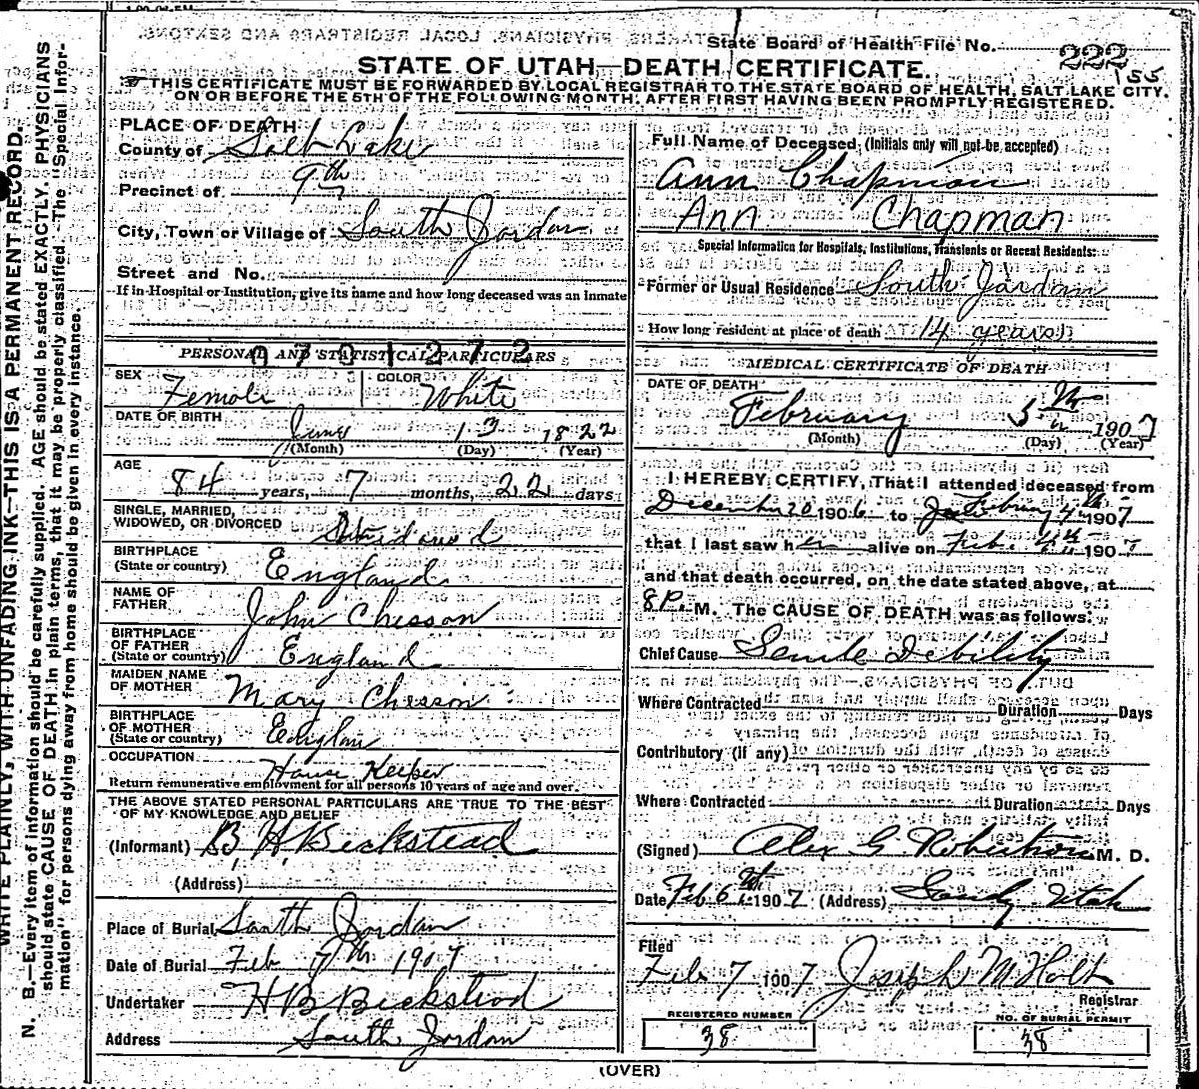 State Board of Health File No. 222
155
STATE OF UTAH—DEATH CERTIFICATE.
THIS CERTIFICATE MUST BE FORWARDED BY LOCAL REGISTRAR TO THE STATE BOARD OF HEALTH, SALT LAKE CITY.
ON OR BEFORE THE 5TH OF THE FOLLOWING MONTH, AFTER FIRST HAVING BEEN PROMPTLY REGISTERED.
WRITE PLAINLY, WITH UNFADING INK—THIS IS A PERMANENT RECORD.
N. B.—Every item of information should be carefully supplied. AGE should be stated EXACTLY. PHYSICIANS
should state CAUSE OF DEATH in plain terms, that it may be properly classified. The "Special Infor-
mation" for persons dying away from home should be given in every instance.
PLACE OF DEATH
County of Salt Lake
Precinct of 9th
City, Town or Village of South Jordan
Street and No.
If in Hospital or Institution, give its name and how long deceased was an inmate
PERSONAL AND STATISTICAL PARTICULARS
0701272
SEX Female COLOR White
DATE OF BIRTH June 13 1822
(Month) (Day) (Year)
AGE
84 years, 7 months, 22 days
SINGLE, MARRIED,
WIDOWED, OR DIVORCED
BIRTHPLACE
(State or country) England
NAME OF
FATHER John Chesson
BIRTHPLACE
OF FATHER
(State or country) England
MAIDEN NAME
OF MOTHER Mary Chesson
BIRTHPLACE
OF MOTHER
(State or country)
OCCUPATION
House Keeper
Return remunerative employment for all persons 10 years of age and over.
THE ABOVE STATED PERSONAL PARTICULARS ARE TRUE TO THE BEST
OF MY KNOWLEDGE AND BELIEF
(Informant) B. H. Beckstead
(Address)
Place of Burial South Jordan
Date of Burial Feb 7th 1907
Undertaker H B Beckstead
Address South Jordan
Full Name of Deceased (Initials only will not be accepted)
Ann Chapman
Ann Chapman
Special Information for Hospitals, Institutions, Transients or Recent Residents:
Former or Usual Residence South Jordan
How long resident at place of death 14 years
MEDICAL CERTIFICATE OF DEATH
DATE OF DEATH
February 5th 1907
(Month) (Day) (Year)
I HEREBY CERTIFY, That I attended deceased from
December 20 1906 to February 4th 1907
that I last saw her alive on Feb. 4th 1907
and that death occurred, on the date stated above, at
8 P. M. The CAUSE OF DEATH was as follows:
Chief Cause Senile Debility
Where Contracted Duration Days
Contributory (if any)
Where Contracted Duration Days
(Signed) Alex G. Robertson M. D.
Date Feb 6th 1907 (Address) Sandy Utah
Filed
Feb 7 1907 Joseph M Holt
Registrar
REGISTERED NUMBER
38
NO. OF BURIAL PERMIT
38
(OVER)